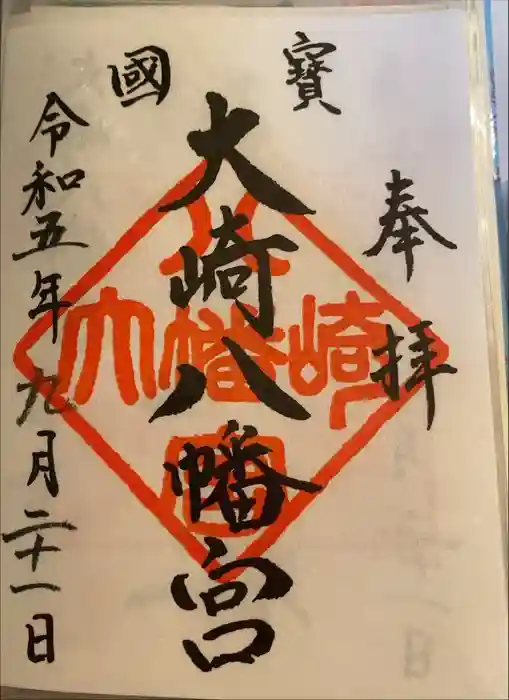 奉拝
國寶
大崎八幡宮
令和五年九月二十一日
大崎八幡宮